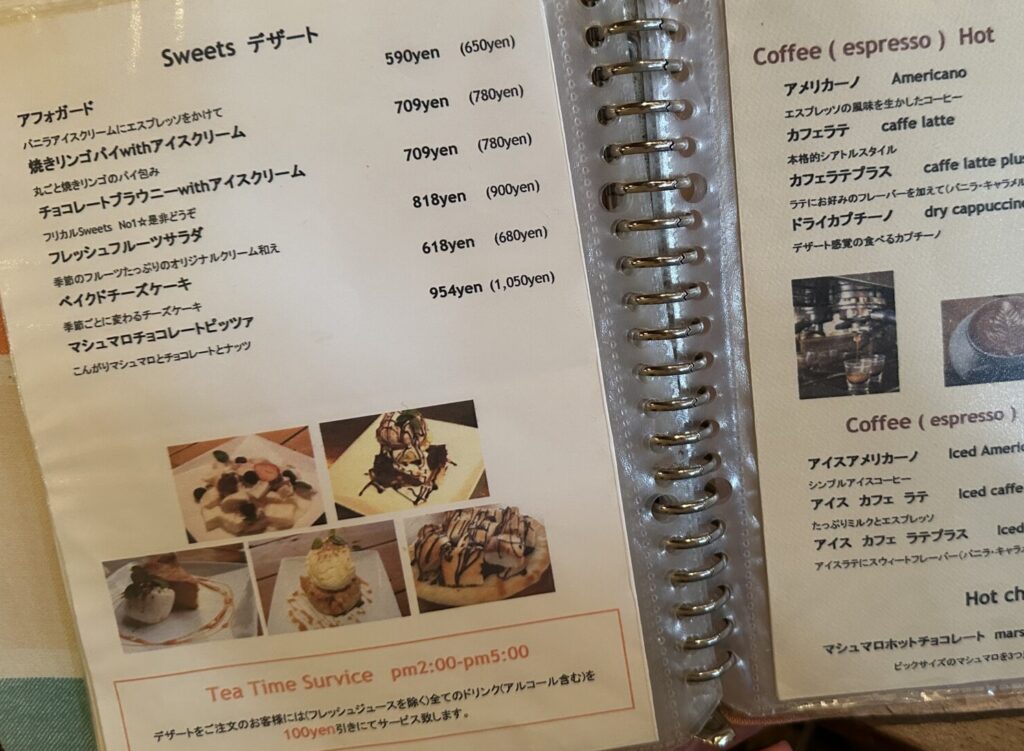 Sweets デザート
アフォガード 590yen (650yen)
バニラアイスクリームにエスプレッソをかけて
焼きリンゴパイwithアイスクリーム 709yen (780yen)
丸ごと焼きリンゴのパイ包み
チョコレートブラウニーwithアイスクリーム 709yen (780yen)
フリカルSweets No1☆是非どうぞ
フレッシュフルーツサラダ 818yen (900yen)
季節のフルーツたっぷりのオリジナルクリーム和え
ベイクドチーズケーキ 618yen (680yen)
季節ごとに変わるチーズケーキ
マシュマロチョコレートピッツァ 954yen (1,050yen)
こんがりマシュマロとチョコレートとナッツ
Tea Time Survice pm2:00-pm5:00
デザートをご注文のお客様には(フレッシュジュースを除く)全てのドリンク(アルコール含む)を
100yen引きにてサービス致します。
Coffee ( espresso ) Hot
アメリカーノ Americano
エスプレッソの風味を生かしたコーヒー
カフェラテ caffe latte
本格的シアトルスタイル
カフェラテプラス caffe latte plus
ラテにお好みのフレーバーを加えて(バニラ・キャラメル
ドライカプチーノ dry cappuccino
デザート感覚の食べるカプチーノ
Coffee ( espresso )
アイスアメリカーノ Iced Americ
シンプルアイスコーヒー
アイス カフェ ラテ Iced caffe
たっぷりミルクとエスプレッソ
アイス カフェ ラテプラス Iced
アイスラテにスウィートフレーバー(バニラ・キャラ
Hot ch
マシュマロホットチョコレート mars
ビックサイズのマシュマロを3つ